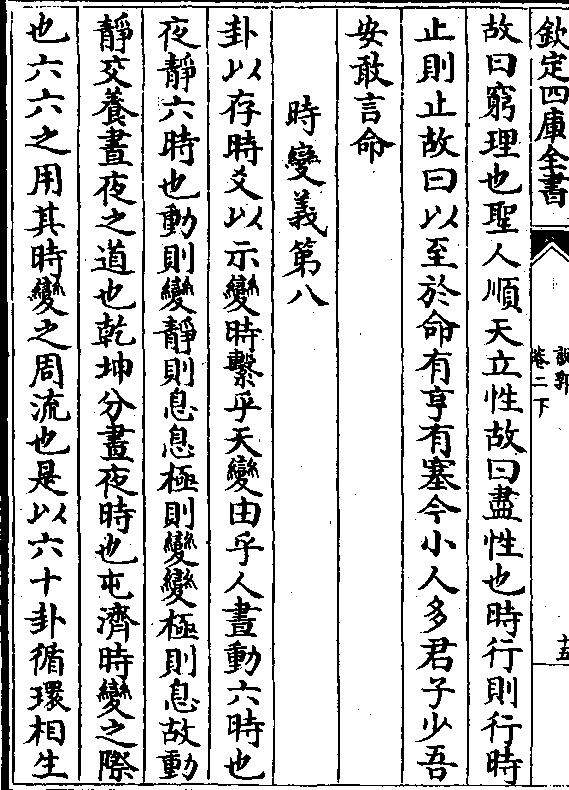 欽定四庫全書
卷二下
十五
故曰窮理也聖人順天立性故曰盡性也時行則行時
止則止故曰以至於命有亨有塞今小人多君子少吾
安敢言命
時變義第八
卦以存時爻以示變時繫乎天變由乎人晝動六時也
夜靜六時也動則變靜則息息極則變變極則息故動
靜交養晝夜之道也乾坤分晝夜時也屯濟時變之際
也六六之用其時變之周流也是以六十卦循環相生